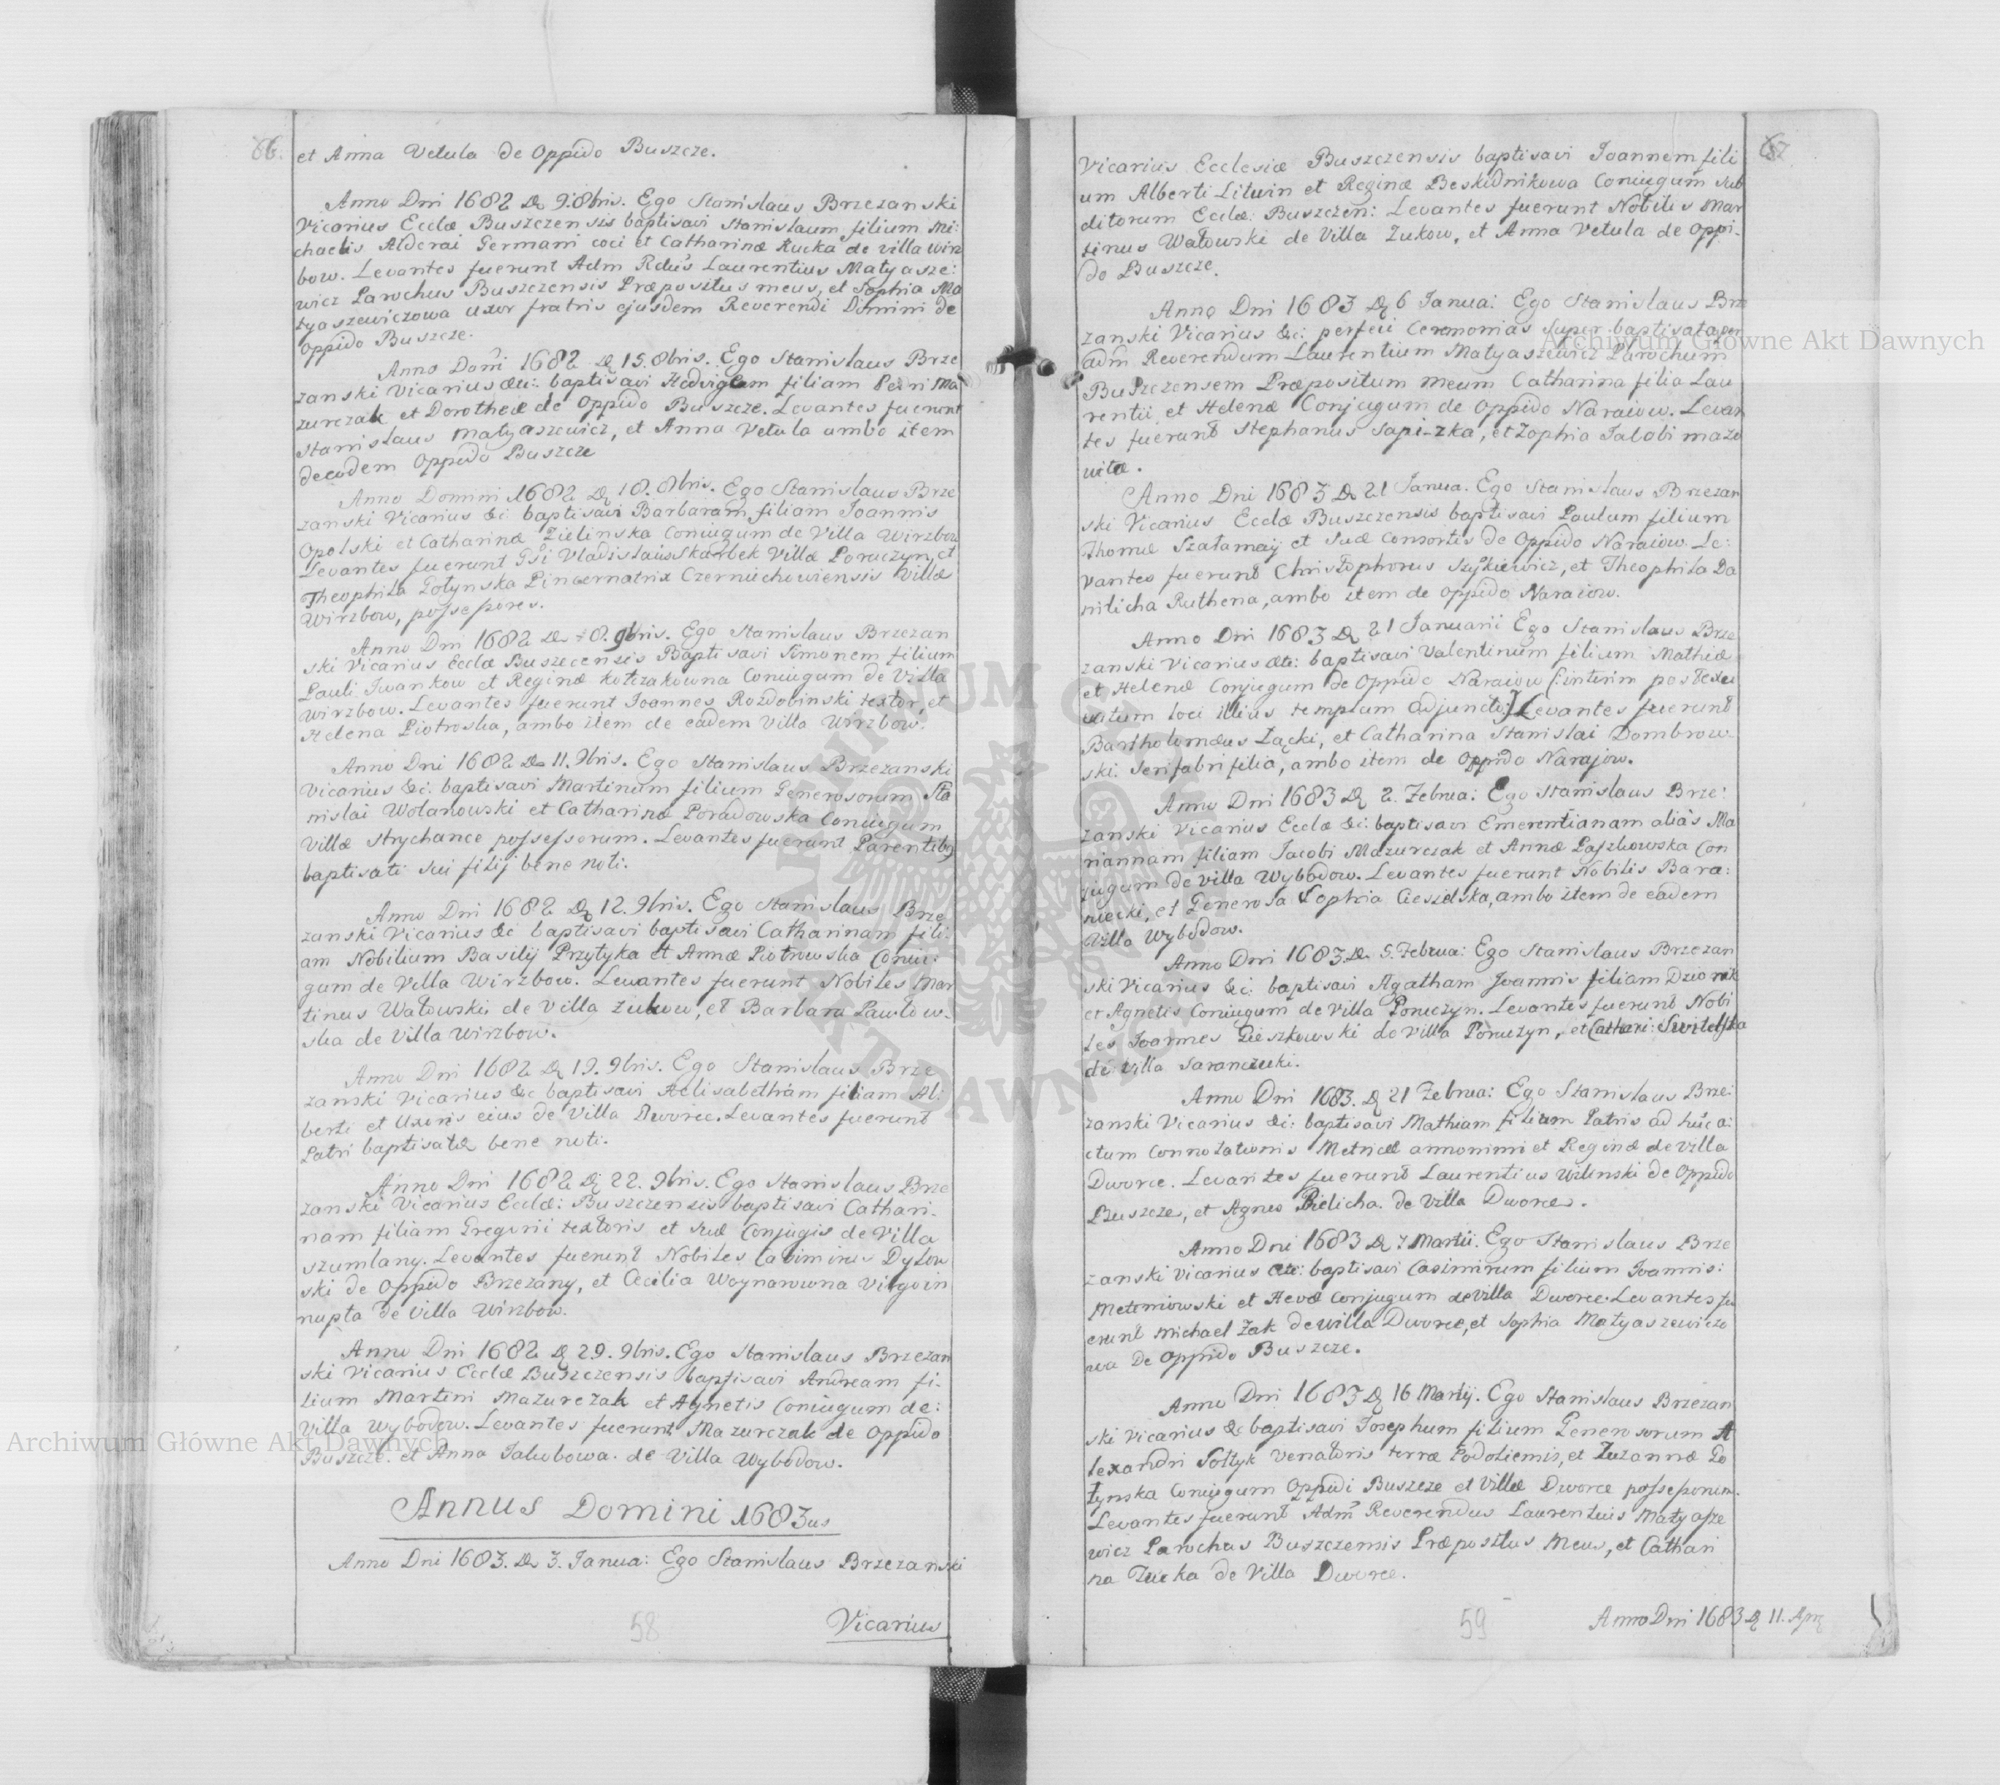 66.
et Anna Vetula de Oppido Buszcze.
Anno Dni 1682 D 9. 8bris. Ego Stanislaus Brzezanski
Vicarius Ecclæ Buszczensis baptisavi Stanislaum filium Mi:
chaelis Alderai Germani coci et Catharinæ Rucka de villa Wirz
bow. Levantes fuerunt Adm Rdus Laurentius Matyasze:
wicz Parochus Buszczensis Præpositus meus, et Sophia Ma
tyaszewiczowa uxor fratris ejusdem Reverendi Domini de
Oppido Buszcze.
Anno Domi 1682 D 15. 8bris. Ego Stanislaus Brze
zanski Vicarius &: baptisavi Hedvigem filiam Petri Ma
zurczak et Dorotheæ de Oppido Buszcze. Levantes fuerunt
Stanislaus Matyaszewicz, et Anna Vetula ambo item
de eodem Oppido Buszcze
Anno Domini 1682 D 18. 8bris. Ego Stanislaus Brze
zanski Vicarius &c: baptisavi Barbaram filiam Joannis
Opolski et Catharinæ Zielinska Coniugum de Villa Wirzbow
Levantes fuerunt Gsi Vladislaus Skarbek Villæ Poruczyn, et
Theophila Potynska Pincernatrix Czerniechowiensis Villæ
Wirzbow, possessores.
Anno Dni 1682 D 8. 9bris. Ego Stanislaus Brzezan
ski Vicarius Ecclæ Buszczensis Baptisavi Simonem filium
Pauli Iwankow et Reginæ Kotzakowna Coniugum de Villa
Wirzbow. Levantes fuerunt Joannes Rozdobinski textor, et
Helena Piotroska, ambo item de eadem Villa Wirzbow.
Anno Dni 1682 D 11. 9bris. Ego Stanislaus Brzezanski
Vicarius &c: baptisavi Martinum filium Generosorum Sta
nislai Wolanowski et Catharina Poradowska Coniugum
Villæ Strychance possessorum. Levantes fuerunt Parentibus
baptisati sui filij bene noti.
Anno Dni 1682 D 12. 9bris. Ego Stanislaus Brze
zanski Vicarius &c baptisavi baptisavi Catharinam fili:
am Nobilium Basilij Przytyka et Annæ Piotrowska Coniu:
gum de Villa Wirzbow. Levantes fuerunt Nobiles Mar
tinus Watowski de Villa Zukow, et Barbara Pawlow-
ska de Villa Wirzbow.
Anno Dni 1682 D 19. 9bris. Ego Stanislaus Brze
zanski Vicarius &c baptisavi Aelisabetham filiam Al:
berti et Uxoris eius de Villa Dworce. Levantes fuerunt
Patri baptisatæ bene noti.
Anno Dni 1682 D 22. 9bris. Ego Stanislaus Brze
zanski Vicarius Ecclæ: Buszczensis baptisavi Cathari-
nam filiam Gregorii textoris et suæ Conjugis de Villa
Szumlany. Levantes fuerunt Nobiles Casimirus Dylow
ski de Oppido Brzezany, et Cecilia Woynarowna Virgo in
nupta de Villa Wirzbow.
Anno Dni 1682 D 29. 9bris. Ego Stanislaus Brzezan
ski Vicarius Ecclæ Buszczensis baptisavi Andream fi-
lium Martini Mazurczak et Agnetis Coniugum de:
Villa Wybodow. Levantes fuerunt Mazurczak de Oppido
Buszcze. et Anna Jakubowa. de Villa Wybodow.
Annus Domini 1683us
Anno Dni 1683. D 3. Janua: Ego Stanislaus Brzezanski
58
Vicarius
67
Vicarius Ecclesiæ Buszczensis baptisavi Joannem fili
um Alberti Litwin et Reginæ Beskidnikowa Coniugum sub
ditorum Ecclæ: Buszczen: Levantes fuerunt Nobilis Mar
tinus Watowski de Villa Zukow, et Anna Vetula de Oppi-
do Buszcze.
Anno Dni 1683 D 6 Janua: Ego Stanislaus Brze
zanski Vicarius &c: perfeci Ceremonias super baptisata per
adm Reverendum Laurentium Matyaszewicz Parochum
Buszczensem Præpositum meum Catharina filia Lau
rentii et Helenæ Conjugum de Oppido Naraiow. Levan
tes fuerunt Stephanus Sapi-zka, et Zophia Jalobi mazo
witæ.
Anno Dni 1683 D 21 Janua. Ego Stanislaus Brzezan
ski Vicarius Ecclæ Buszczensis baptisavi Paulum filium
Thomæ Szatamaij et suæ Consortis de Oppido Naraiow. Le:
vantes fuerunt Christophorus Szyskiewicz, et Theophila Da
nilicha Ruthena, ambo item de Oppido Naraiow.
Anno Dni 1683 D 21 Januarii Ego Stanislaus Brze
zanski Vicarius &c: baptisavi Valentinum filium Mathiæ
et Helenæ Conjugum de Oppido Naraiow (: interim post exu
ustum loci illius templum adjuncto:) Levantes fuerunt
Bartholomæus Łącki, et Catharina Stanislai Dombrow
ski. Serifabri filia, ambo item de Oppido Narajow.
Anno Dni 1683 D 2. Februa: Ego Stanislaus Brze:
zanski Vicarius Ecclæ &c: baptisavi Emerentianam alias Ma
riannam filiam Jacobi Mazurczak et Annæ Paszkowska Con
jugum de Villa Wybodow. Levantes fuerunt Nobilis Bara:
niecki, et Generosa Sophia Ciesielska, ambo item de eadem
Villa Wybodow.
Anno Dni 1683. D 5. Februa: Ego Stanislaus Brzezan
ski Vicarius &c: baptisavi Agatham Joannis filiam Dwornik
et Agnetis Coniugum de Villa Poruczyn. Levantes fuerunt Nobi
les Joannes Pieszkowski de Villa Poruczyn, et Cathari: Switelska
de Villa Saranczuki.
Anno Dni 1683. D 21 Februa: Ego Stanislaus Brze:
zanski Vicarius &c: baptisavi Mathiam filium Patris ad huc a:
ctum Connotationis Metricæ annonimi et Reginæ de Villa
Dworce. Levantes fuerunt Laurentius Wilinski de Oppido
Buszcze, et Agnes Bielicha. de Villa Dworce.
Anno Dni 1683 D 7 Martii. Ego Stanislaus Brze
zanski Vicarius &c: baptisavi Casimirum filium Joannis:
Meteniowski et Hevæ Conjugum de Villa Dworce. Levantes fu
erunt Michael Zak de Villa Dworce, et Sophia Matyaszewiczo
wa De Oppido Buszcze.
Anno Dni 1683 D 16 Martij. Ego Stanislaus Brzezan
ski Vicarius &c baptisavi Josephum filium Generosorum A
lexandri Sołtyk Venatoris terræ Podoliensis, et Zuzannæ Po
tynska Coniugum Oppidi Buszcze et Villæ Dworce possessorum.
Levantes fuerunt Adm Reverendus Laurentius Matyasze
wicz Parochus Buszczensis Præpositus Meus, et Cathari
na Zucka de Villa Dworce.
59
Anno Dni 1683 D 11. Apr
Archiwum Główne Akt Dawnych
Archiwum Główne Akt Dawnych
ARCHIWUM GŁÓWNE AKT DAWNYCH